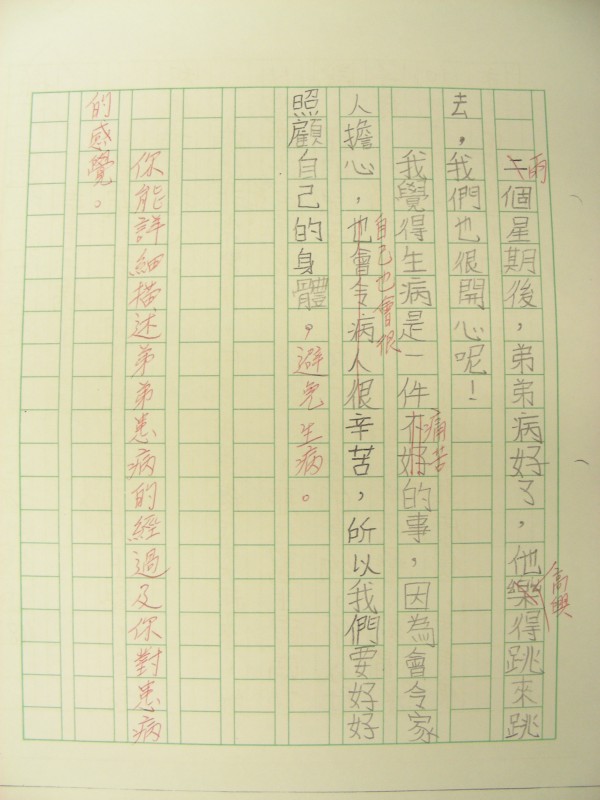 二個星期後，弟弟病好了，他樂得跳來跳
兩
高興
去，我們也很開心呢！
我覺得生病是一件不好的事，因為會令家
痛苦
人擔心，也會令病人很辛苦，所以我們要好好
自己也會很
照顧自己的身體。避免生病。
你能詳細描述弟弟患病的經過及你對患病
的感覺。